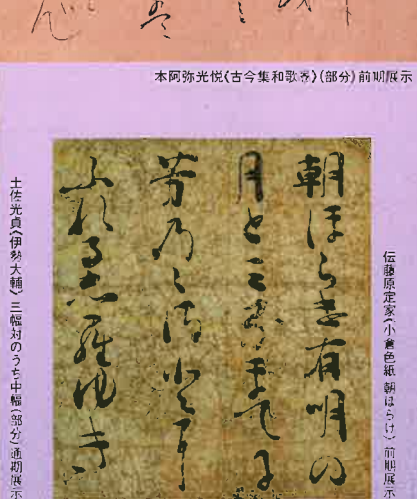 本阿弥光悦《古今集和歌巻》(部分)前期展示
伝藤原定家《小倉色紙 朝ぼらけ》前期展示
朝ほらけ有明の
月と三るまてに
芳乃々佐とに
ふれる志羅ゆき
土佐光貞《伊勢大輔》三幅対のうち中幅(部分)通期展示